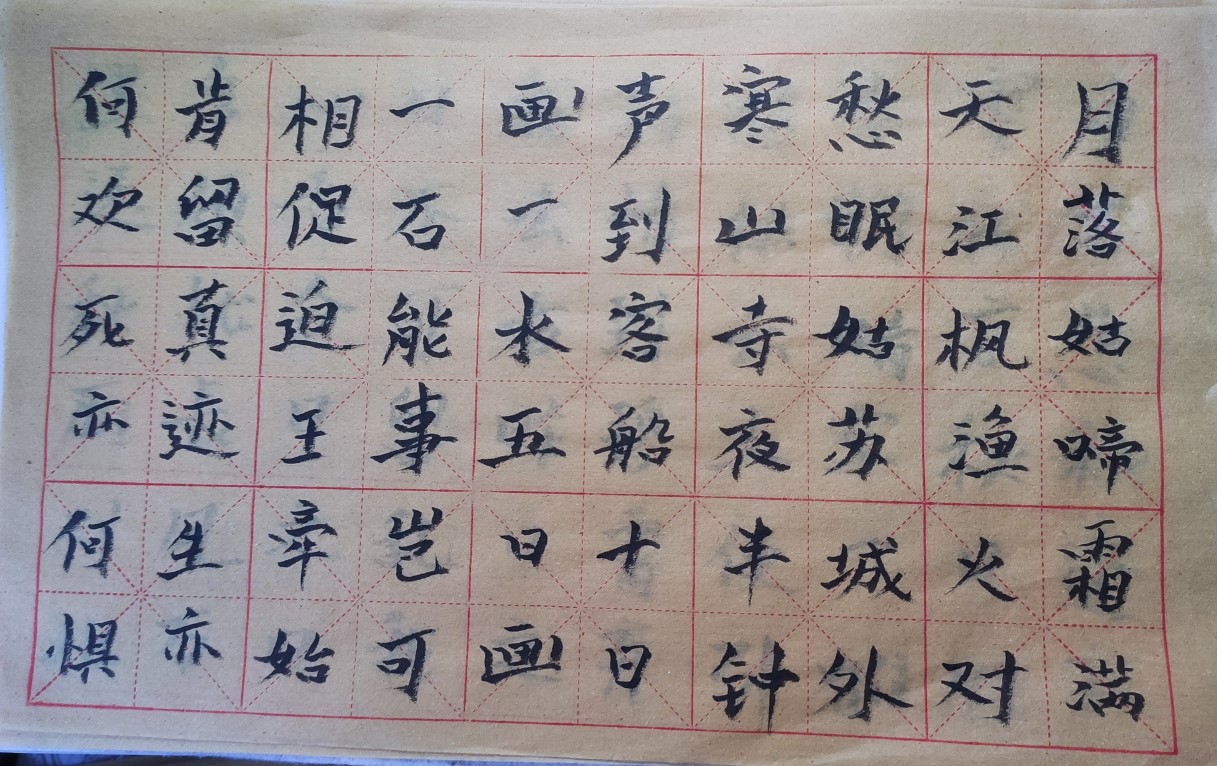 月落姑啼霜满
天江枫渔火对
愁眠姑苏城外
寒山寺夜半钟
声到客船十日
画一水五日画
一石能事岂可
相促迫王牵始
肯留真迹生亦
何欢死亦何惧